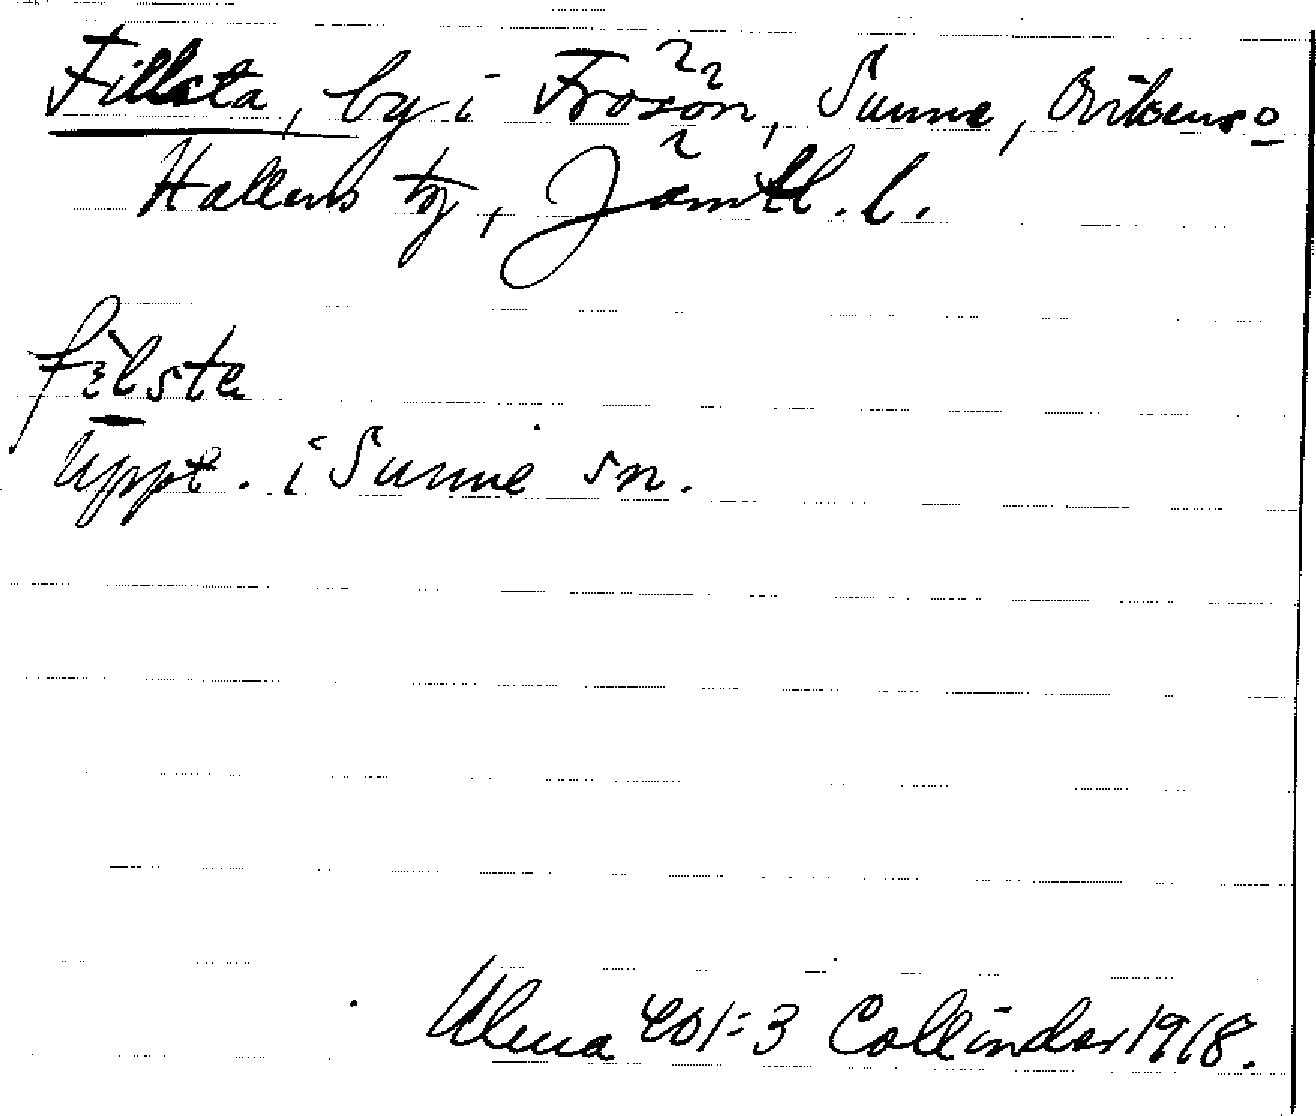 Fillsta, by i Frösön, Sunne, Oviken o
Hallens tg, Jämtl. l.
fìlsta
Uppt. i Sunne sn.
Ulma 401:3 Collinder 1918.